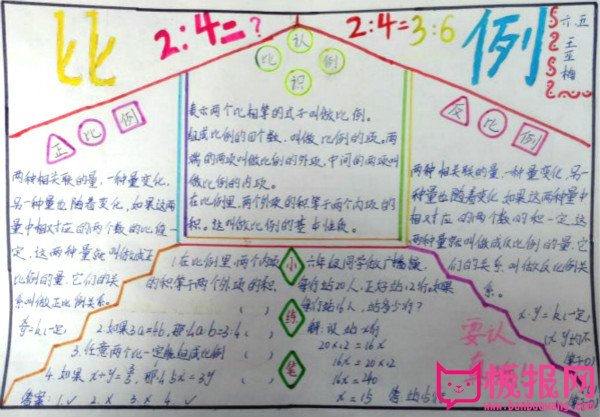 比
2:4=?
2:4=3:6
例
六五
王
亚
梅
认
比 例
识
正比例
两种相关联的量,一种量变化,
另一种量也随着变化,如果这两种
量中相对应的两个数的比值一
定,这两种量就叫做成正
比例的量,它们的关
系叫做正比例关系。
表示两个比相等的式子叫做比例。
组成比例的四个数,叫做比例的项。两
端的两项叫做比例的外项,中间的两项叫
做比例的内项。
在比例里,两个外项的积等于两个内项的
积。这叫做比例的基本性质。
反比例
两种相关联的量,一种量变化,另一
种量也随着变化,如果这两种量中
相对应的两个数的积一定,这
两种量就叫做成反比例的量,它
们的关系叫做反比例关
系。
x·y=k(一定)
小练笔
1.在比例里,两个内项
的积等于两个外项的积. ( )
2.如果3a=4b,那么a:b=3:4 ( )
3.任意两个比一定能组成比例 ( )
答案: 1.✓ 2.x 3.x 4.✓
六年级同学做广播操,
每行站20人,正好站12行。如果
每行站16人,站多少行?
解:设站x行
20×12=16x
16x=20×12
16x=240
x=15
要认
模报网